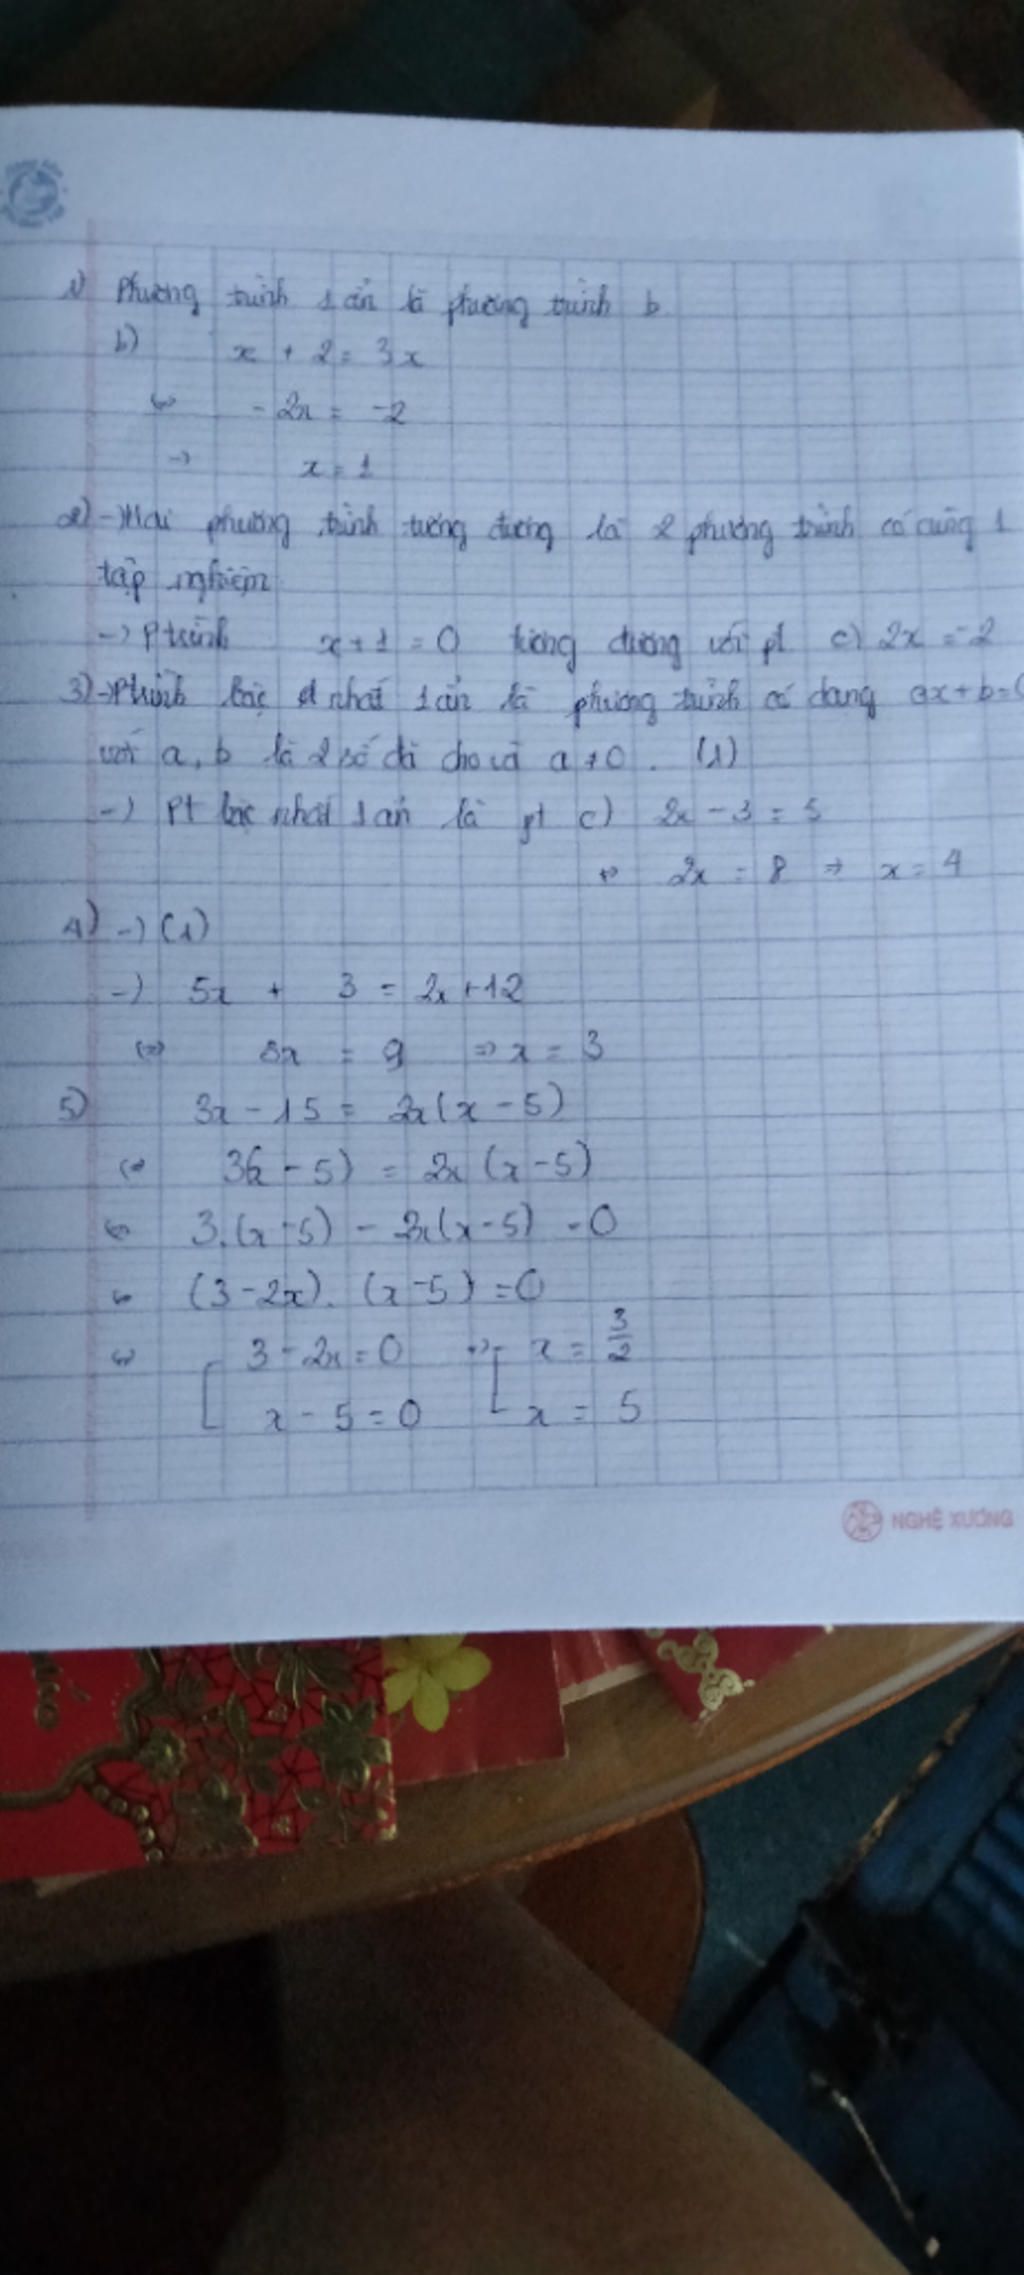 1) Phương trình 1 ẩn là phương trình b
b) x + 2 = 3x
⇔ -2x = -2
→ x = 1
2) → Hai phương trình tương đương là 2 phương trình có cùng 1
tập nghiệm
→ P trình x + 1 = 0 tương đương với pt c) 2x = -2
3) → Ptrình bậc nhất 1 ẩn là phương trình có dạng ax + b = 0
với a, b là 2 số đã cho và a ≠ 0. (1)
→ Pt bậc nhất 1 ẩn là pt c) 2x - 3 = 5
⇔ 2x = 8 ⇒ x = 4
4) → (1)
→ 5x + 3 = 2x + 12
⇔ 3x = 9 ⇒ x = 3
5) 3x - 15 = 2x(x - 5)
⇔ 3(x - 5) = 2x(x - 5)
⇔ 3.(x - 5) - 2x(x - 5) = 0
⇔ (3 - 2x).(x - 5) = 0
⇔ [ 3 - 2x = 0 ⇔ [ x = 3/2
x - 5 = 0 x = 5
NGHỆ XƯƠNG